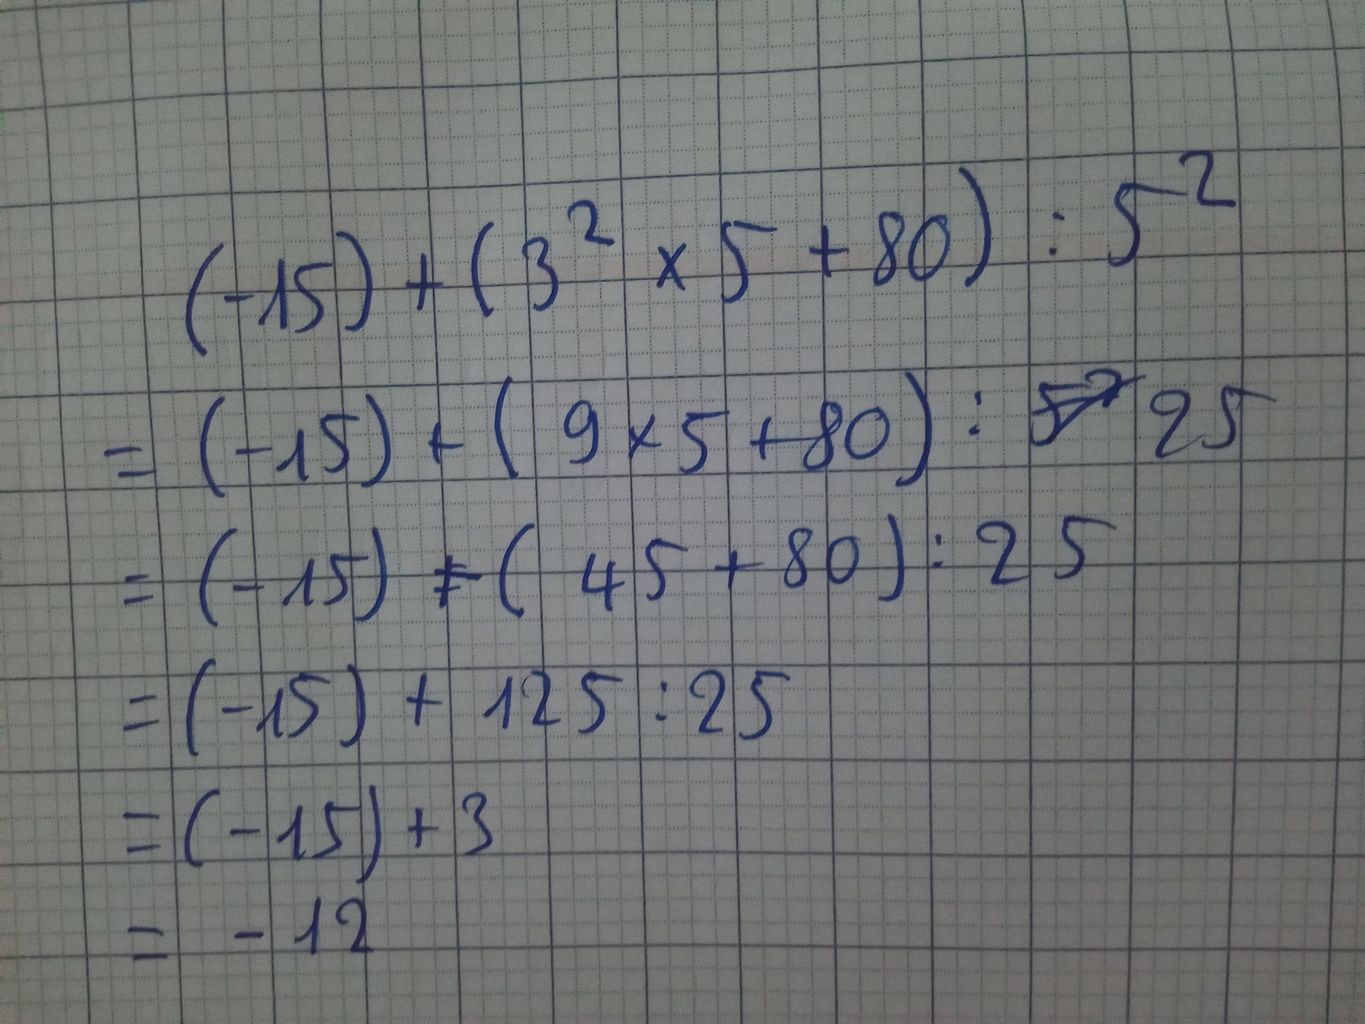 (-15) + (3² × 5 + 80) : 5²
= (-15) + ( 9 × 5 + 80) : 25
= (-15) + ( 45 + 80) : 25
= (-15) + 125 : 25
= (-15) + 3
= - 12